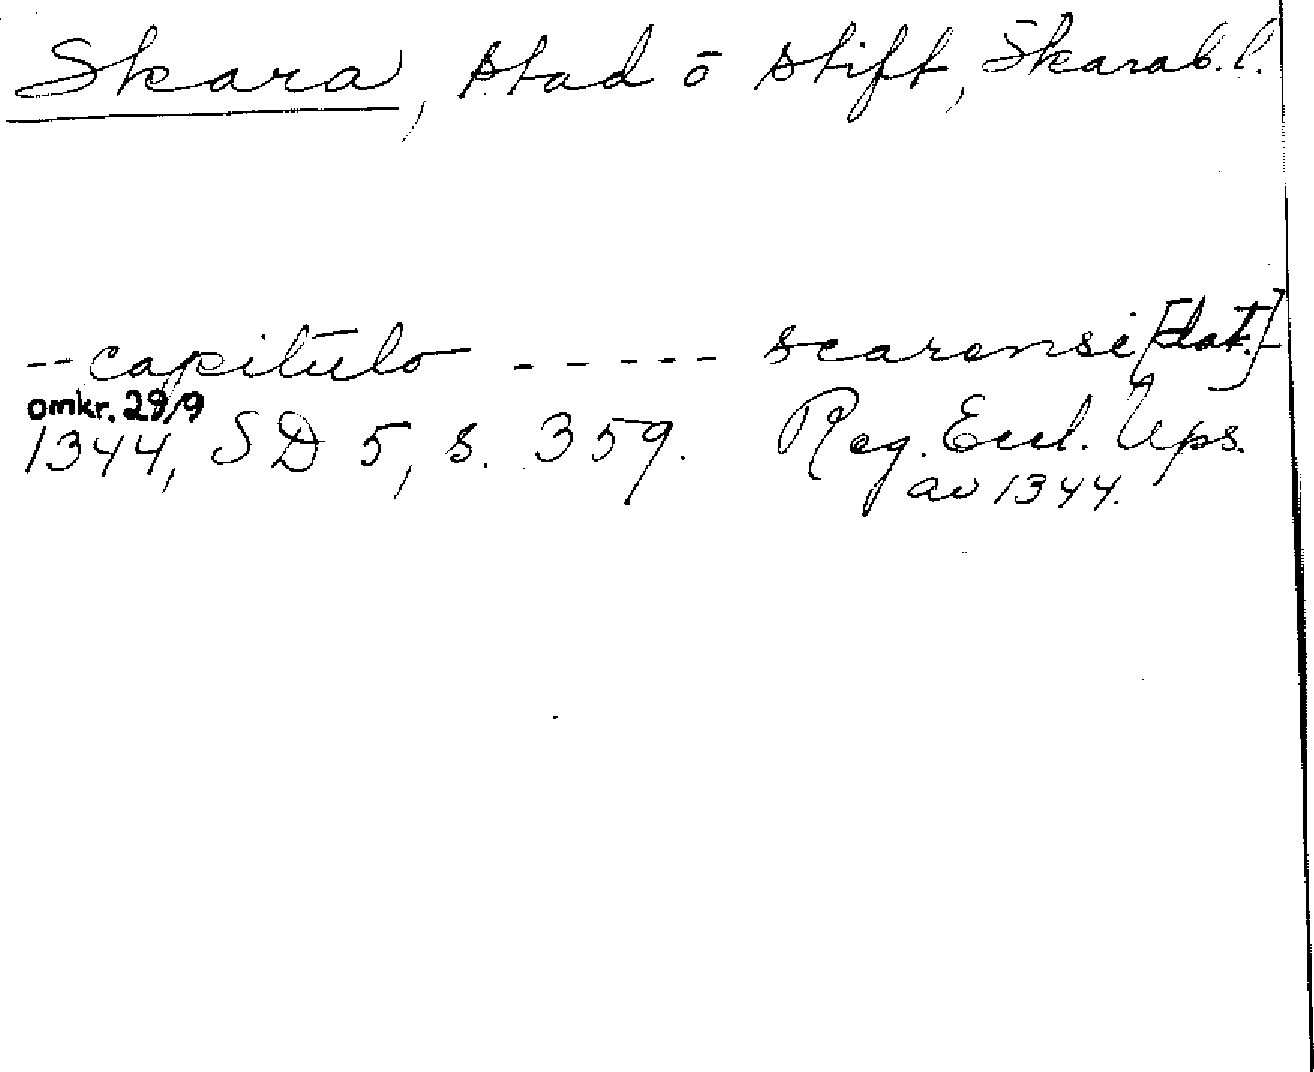 Skara, stad o stift, Skarab.l.
--capitulo ----- scarensi [dat.]
omkr. 29/9
1344, SD 5, s. 359. Reg. Eccl. Ups.
av 1344.